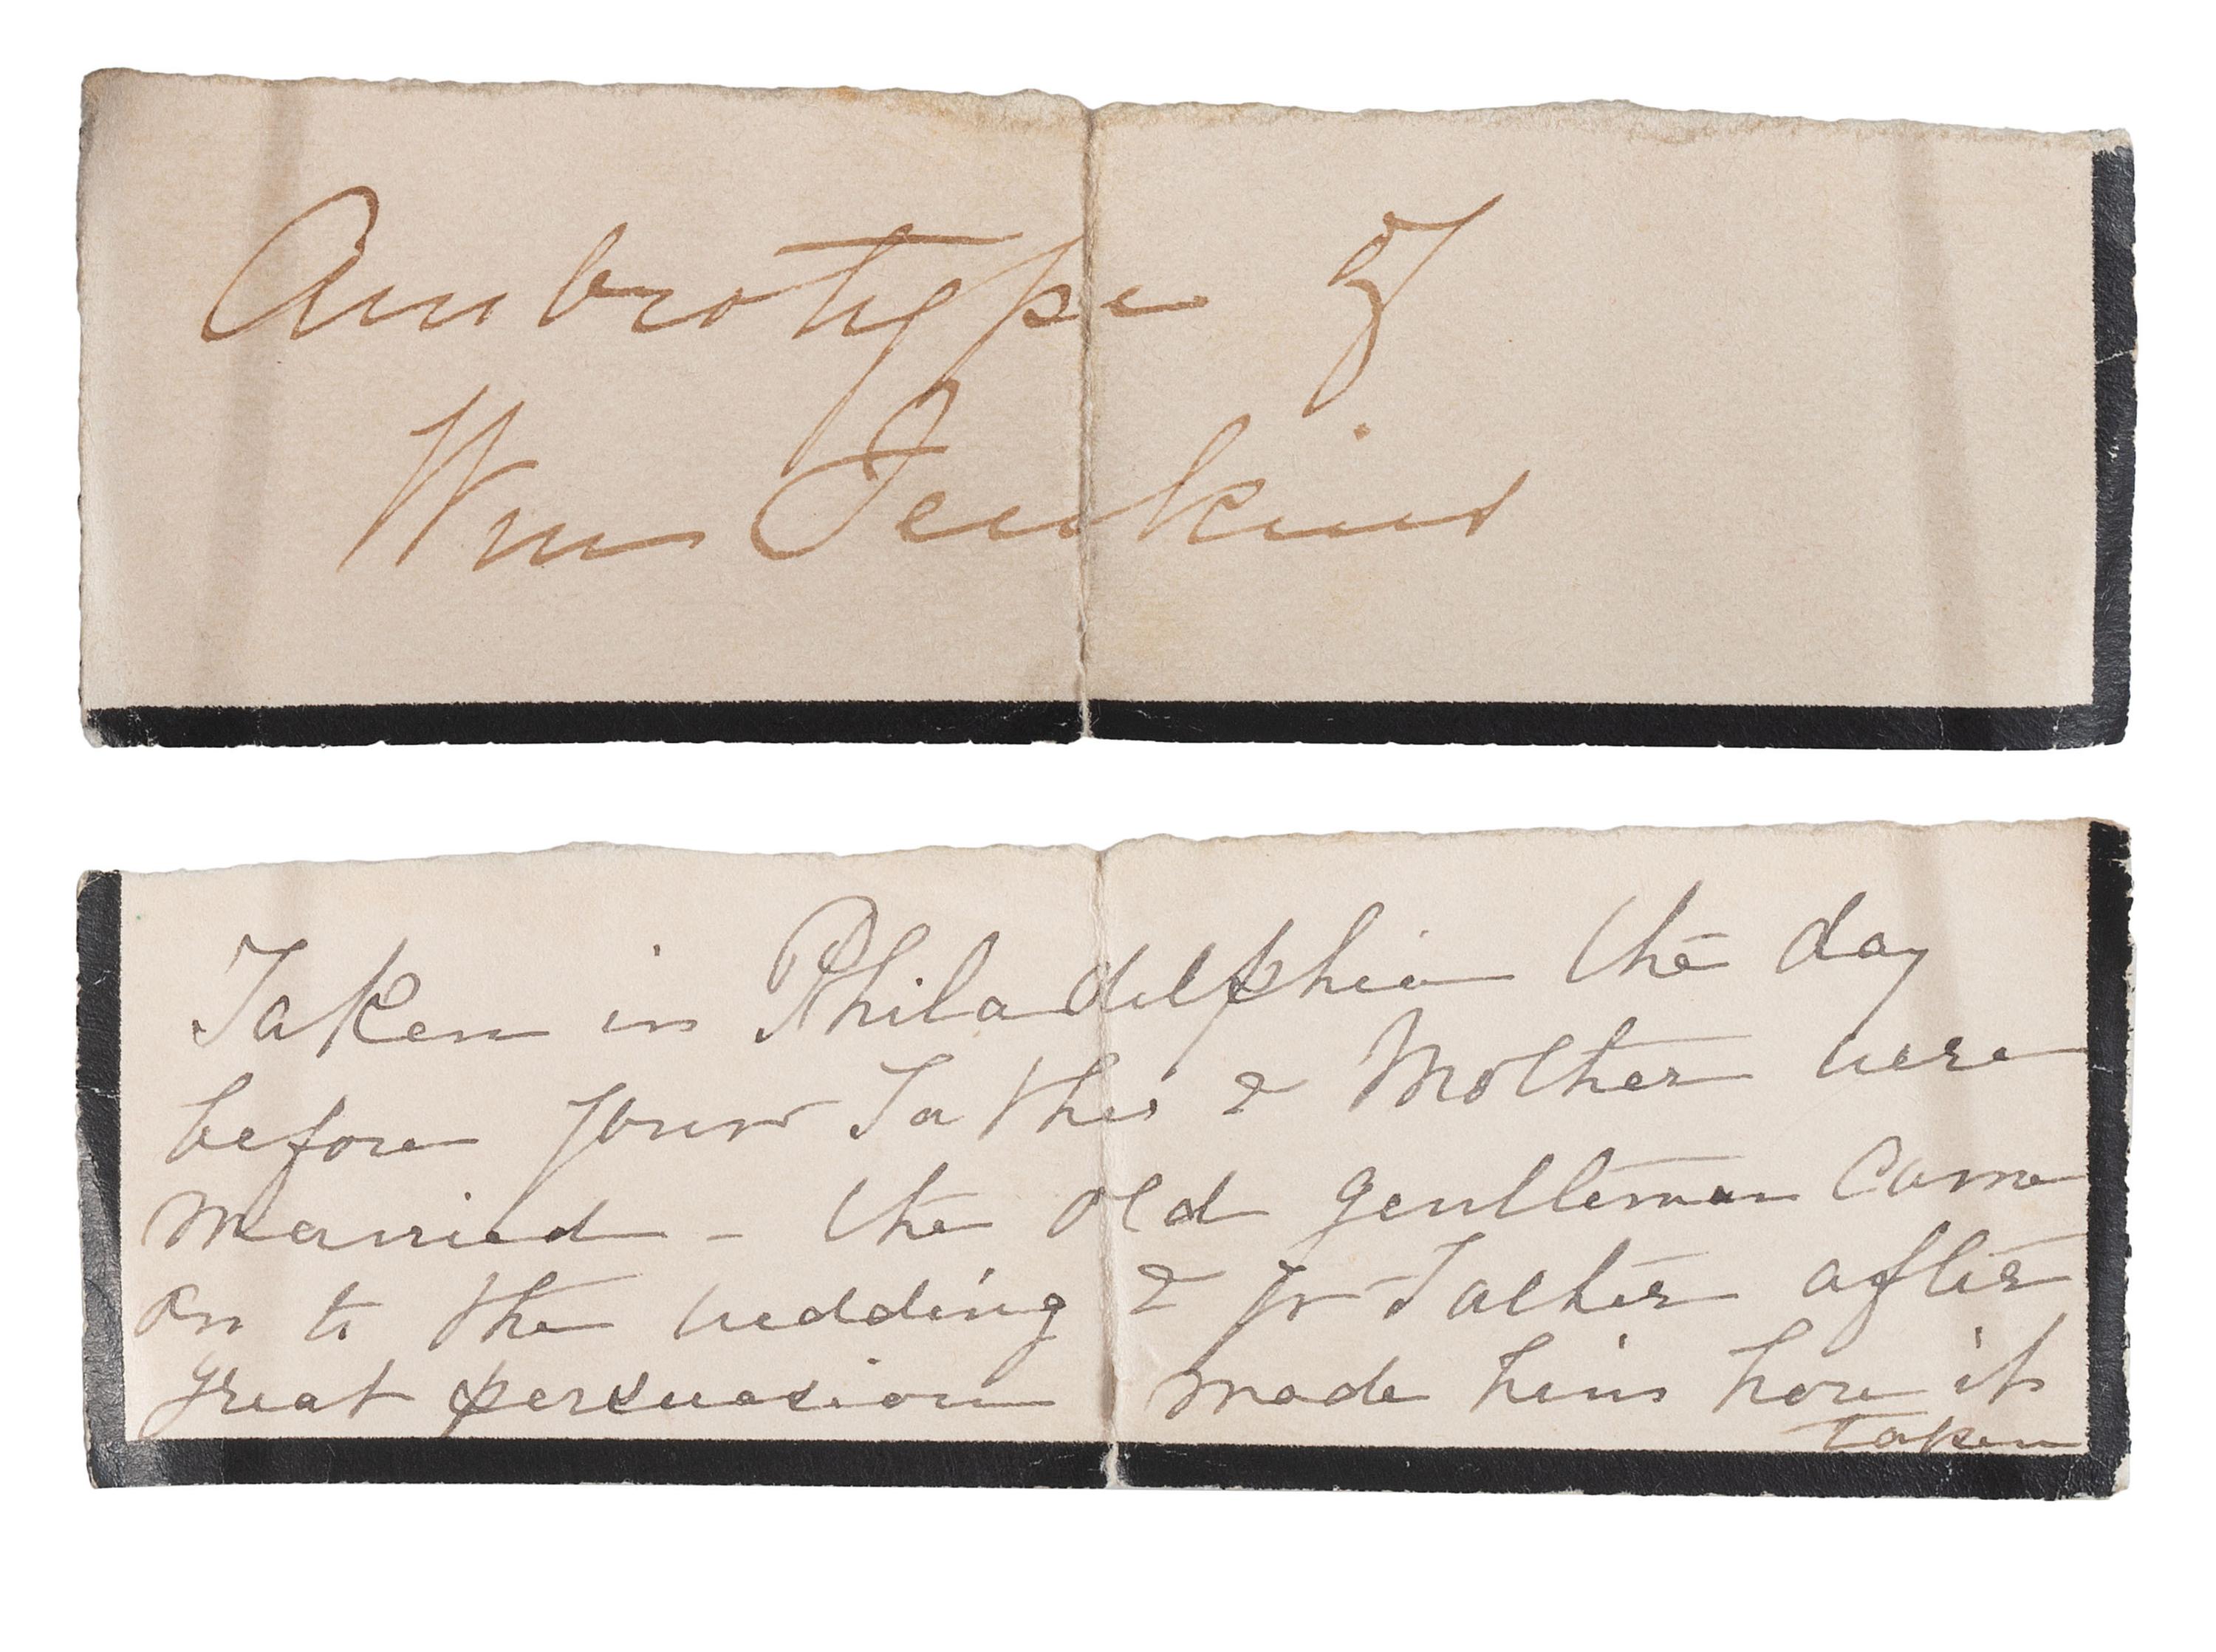 Ambrotype of
Wm Jenkins
Taken in Philadelphia the day
before your Father & Mother were
married - the old gentleman came
on to the wedding & yr Father after
great persuasion made him have it
taken